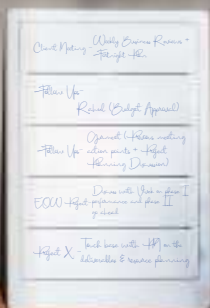 Client Meeting - Weekly Business Review +
Fortnight Plan
Follow Ups -
Rahul (Budget Approval)
(Process meeting
Follow Ups - action points + Project
Planning Discussion)
Discuss with on phase I
EOCO Project performance and phase II
go ahead
Project X - Touch base with on the
deliverables & resource planning